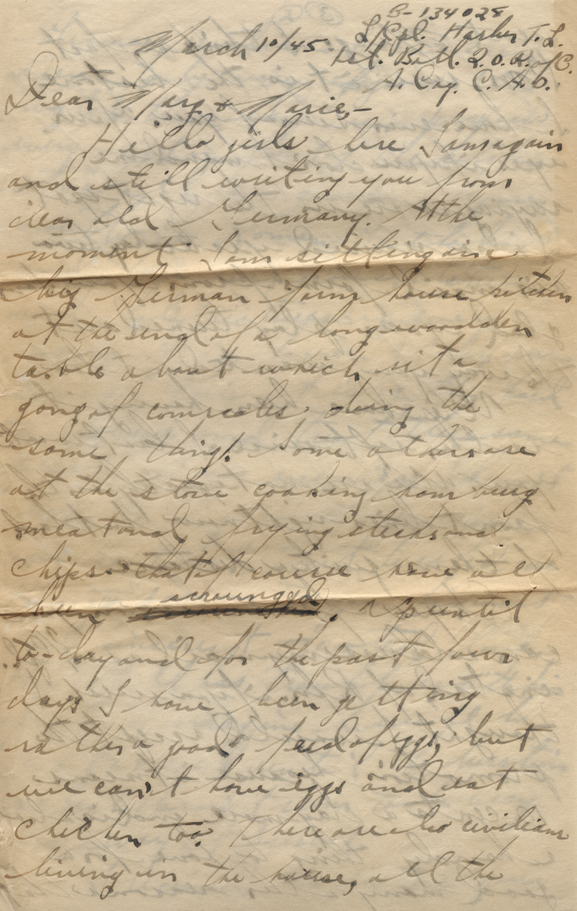 B-134028
March 10/45. L/Cpl. Harber T. L.
1st. Batt. Q.O.R. of C.
A. Coy. C. A. O.
Dear Marg & Marie,-
Hello girls here I am again
and still writing you from
dear old Germany. At the
moment I am sitting in a
big German farm house kitchen
at the end of a long woodden
table about which sit a
gang of comrades doing the
same thing. Some others are
at the stove cooking
meat and frying steaks and
chips that of course have all
been scrounged. Up until
to-day and for the past four
days I have been getting
rather a good feed of eggs, but
we can't have eggs and eat
chicken too. There are no civilians
living in the house, all the